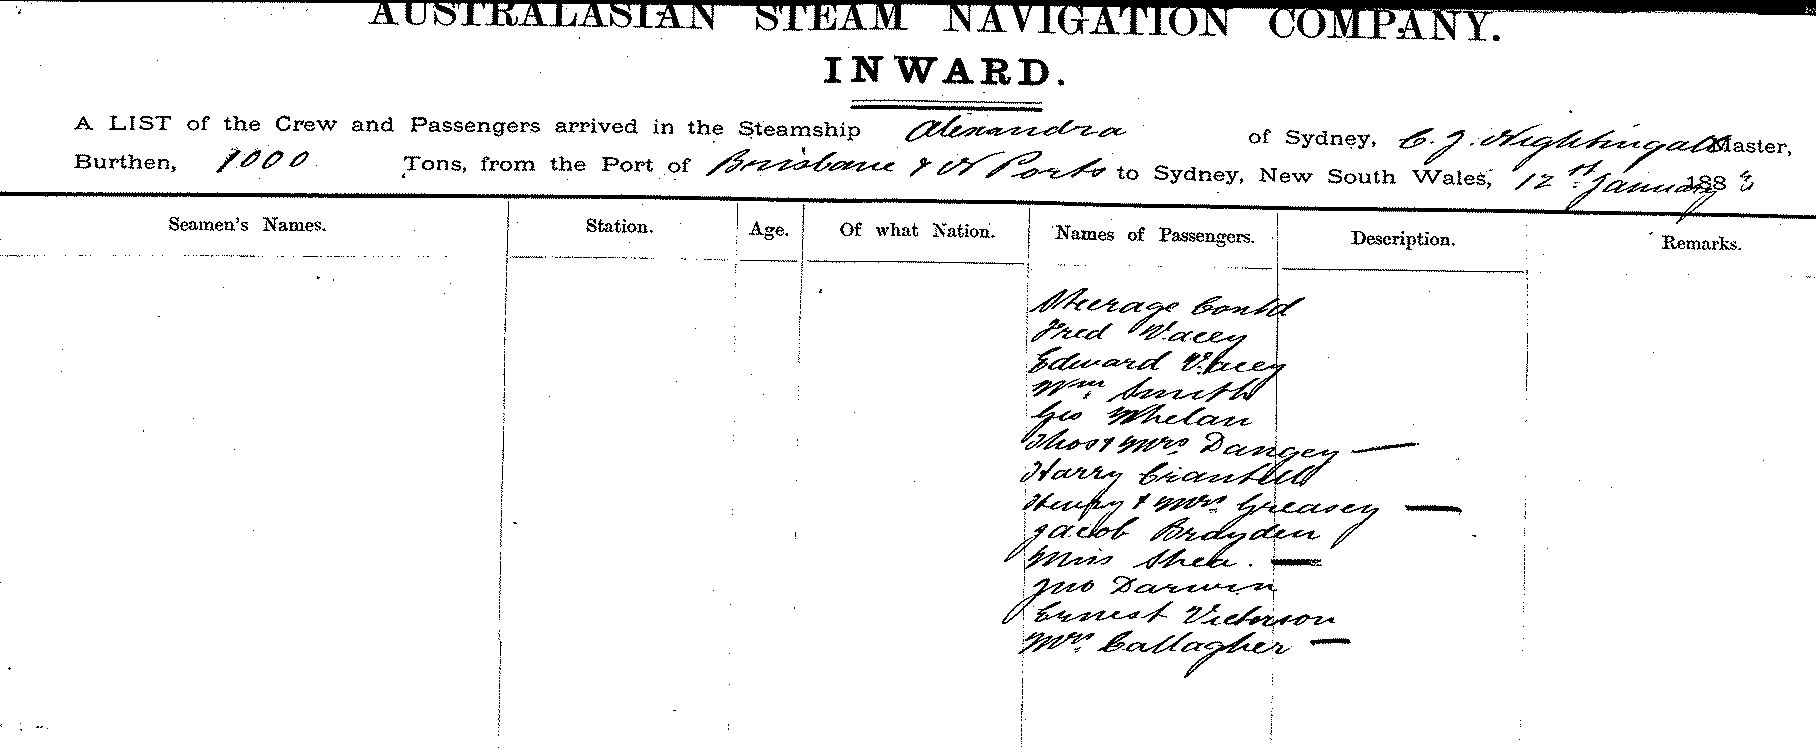 AUSTRALASIAN STEAM NAVIGATION COMPANY.
INWARD.
A LIST of the Crew and Passengers arrived in the Steamship Alexandra of Sydney, C. J. Nightingale Master,
Burthen, 1000 Tons, from the Port of Brisbane & N Ports to Sydney, New South Wales, 12th January 188
Seamen's Names. Station. Age. Of what Nation. Names of Passengers. Description. Remarks.
Steerage Contd
Fred Vacey
Edward Vacey
Wm. Smith
Geo Whelan
Thos & Mrs Dangey —
Harry
Henry & Mrs Greasey —
Jacob Brayden
Miss Shea. —
Jno Darwin
Ernest Victorson
Mrs. Callagher —